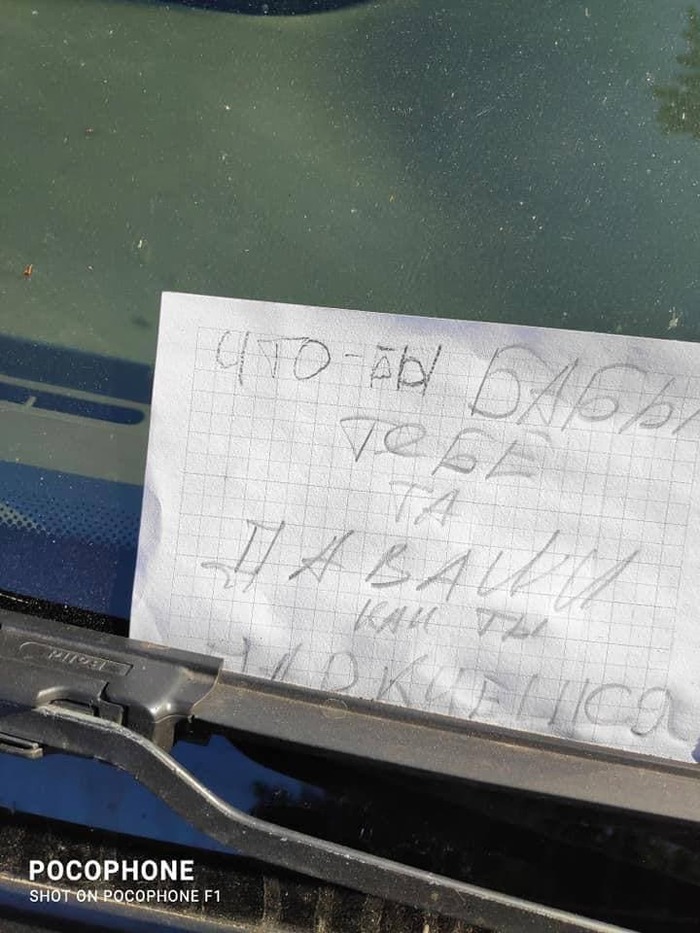 ЧТО-БЫ БАБЫ
ТеБЕ
ТА
ДАВАЛИ
КАК ТЫ
ПАРКУЕШСЯ
POCOPHONE
SHOT ON POCOPHONE F1